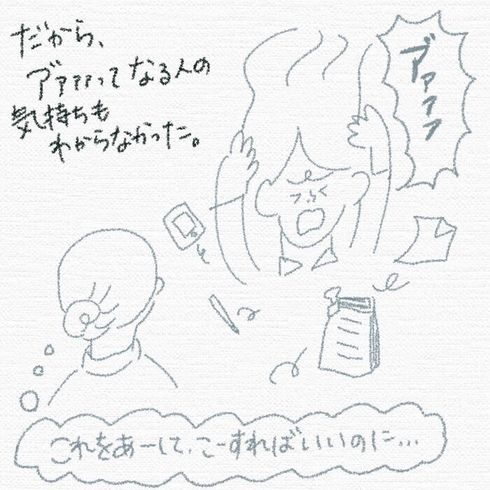 だから、
ブァァァって なる人の
気持ちも
わからなかった。
ブァァァァ
これをあーして、こーすればいいのに…